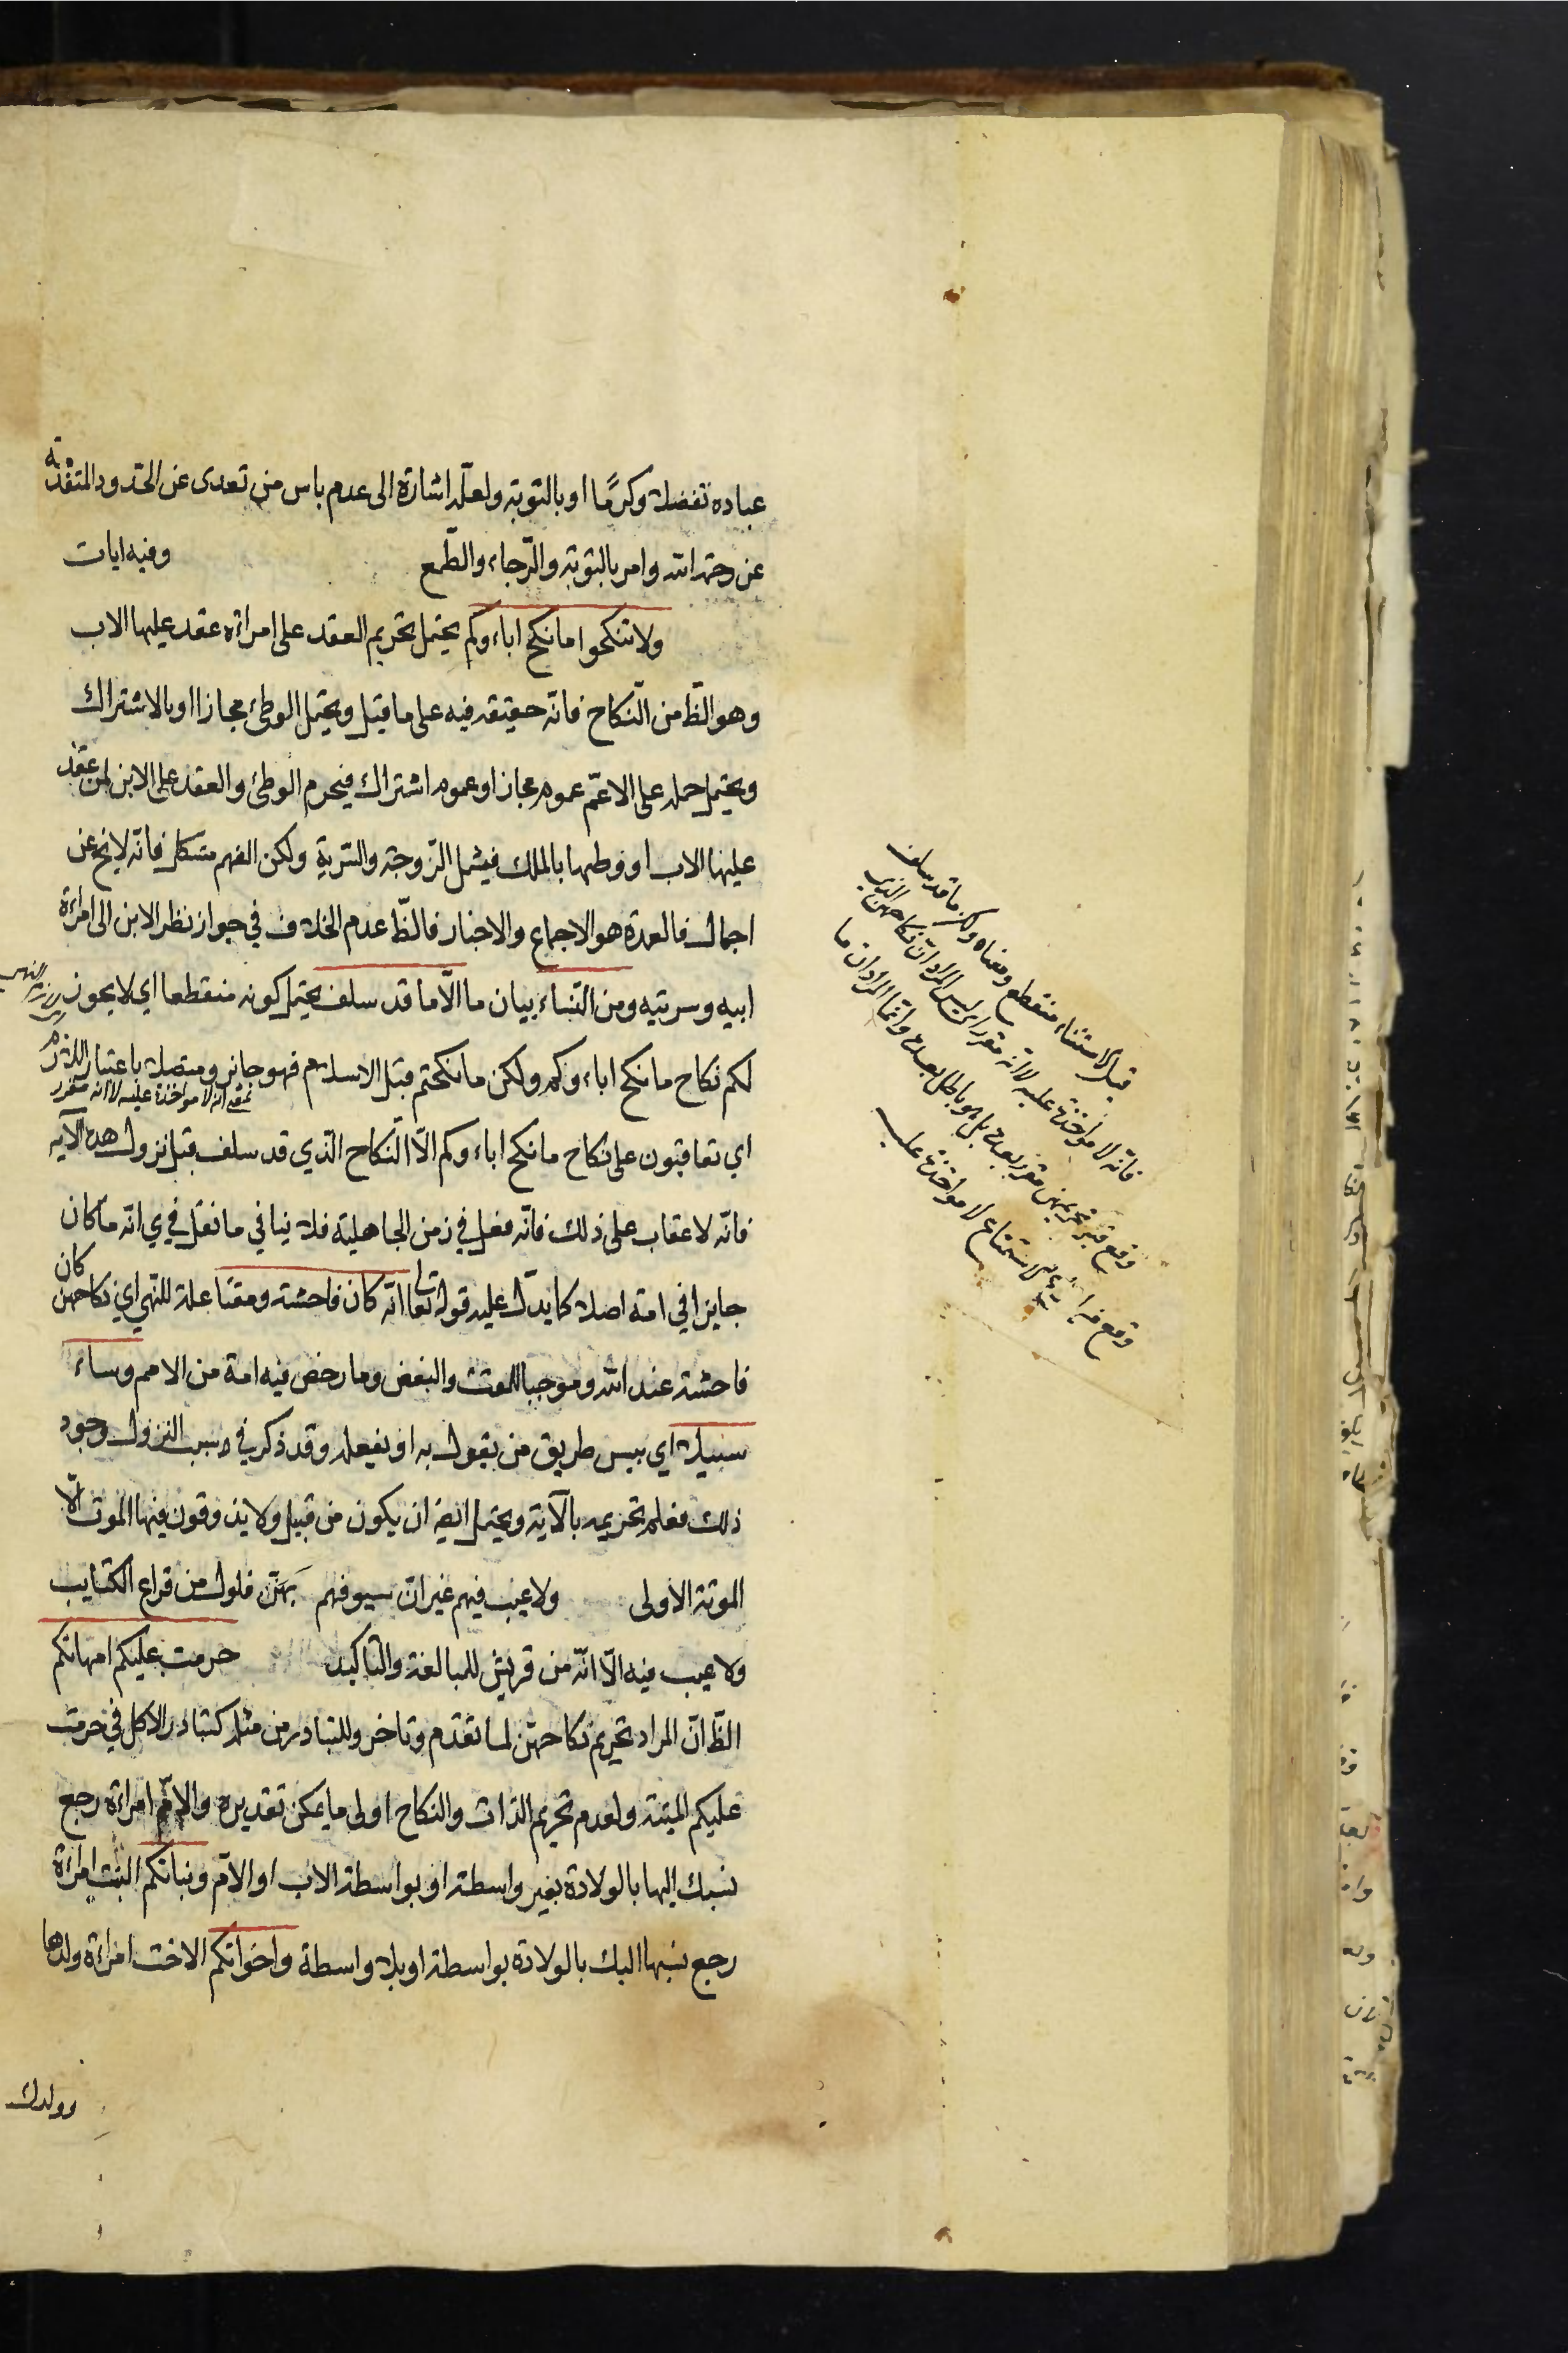 عباده تفضلا وكرمًا او بالتوبة ولعلّه اشارة الى عدم ياس من تعدى عن الحدود المتقدمة
عن رحمة الله وامر بالتوبة والرّجاء والطّمع وفيه ايات
ولا تنكحوا ما نكح اباءوكم يحتمل تحريم العقد على امراءة عقد عليها الاب
وهو الظّ من النّكاح فانّه حقيقة فيه على ما قيل ويحتمل الوطئ مجازا او بالاشتراك
ويحتمل حمله على الاعمّ عموم مجاز او عموم اشتراك فيحرم الوطئ والعقد على الابن لمن عقد
عليها الاب او وطيها بالملك فيشمل الزّوجة والسّرية ولكن الفهم مشكل فانّه لا يخ عن
اجمال فالعمدة هو الاجماع والاخبار فالظّ عدم الخلاف في جواز نظر الابن الى امراءة
ابيه وسريته ومن النّساء بيان ما الّا ما قد سلف يحتمل كونه منقطعا اي لا يجوز
لكم نكاح ما نكح اباءوكم ولكن ما نكحتم قبل الاسلام فهو جائز ومتصلا باعتبار اللازم
بمعنى انه لا مواخذة عليه لا انه مقرر
اي تعاقبون على نكاح ما نكح اباءوكم الّا النّكاح الّذي قد سلف قبل نزول هذه الآية
فانّه لا عقاب على ذلك فانّه فعل في زمن الجاهلية فلا ينافي ما نقل في ي انّه ما كان
جايزا في امة اصلا كما يدلّ عليه قوله تعا انّه كان فاحشة ومقتًا علة للنّهي اي نكاحهن كان
فاحشة عند الله وموجبا للمقت والبغض وما رخص فيه امة من الامم وساء
سبيلا اي بيس طريق من يقول به او يفعله وقد ذكر في سبب النزول وجود
ذلك فعلم تحريمه بالآية ويحتمل ايضا ان يكون من قبيل ولا يذوقون فيها الموت الّا
الموتة الاولى ولا عيب فيهم غير انّ سيوفهم بهنّ فلول من قراع الكتايب
ولا عيب فيه الّا انّه من قريش للمبالغة والتّاكيد حرمت عليكم امهاتكم
الظّ انّ المراد تحريم نكاحهنّ لما تقدّم وتاخر وللتبادر من مثله كتبادر الاكل في حرمت
عليكم الميتة ولعدم تحريم الذات والنكاح اولى ما يمكن تقديره والامّ امراءة رجع
نسبك إليها بالولادة بغير واسطة او بواسطة الاب او الامّ وبناتكم البنت امراءة
رجع نسبها اليك بالولادة بواسطة او بلا واسطة واخواتكم الاخت امراءة ولدها
وولدك
قيل الاستثناء منقطع ومعناه ولكن ما قد سلف
فانّه لا مواخذة عليه لا انّه مقرر اي ليس المراد انّ نكاحهن الذي
وقع قبل تحريمهن مقرر بعده بل هو باطل بعده وانّما المراد ان ما
وقع من الاستمتاع لا مواخذة عليه